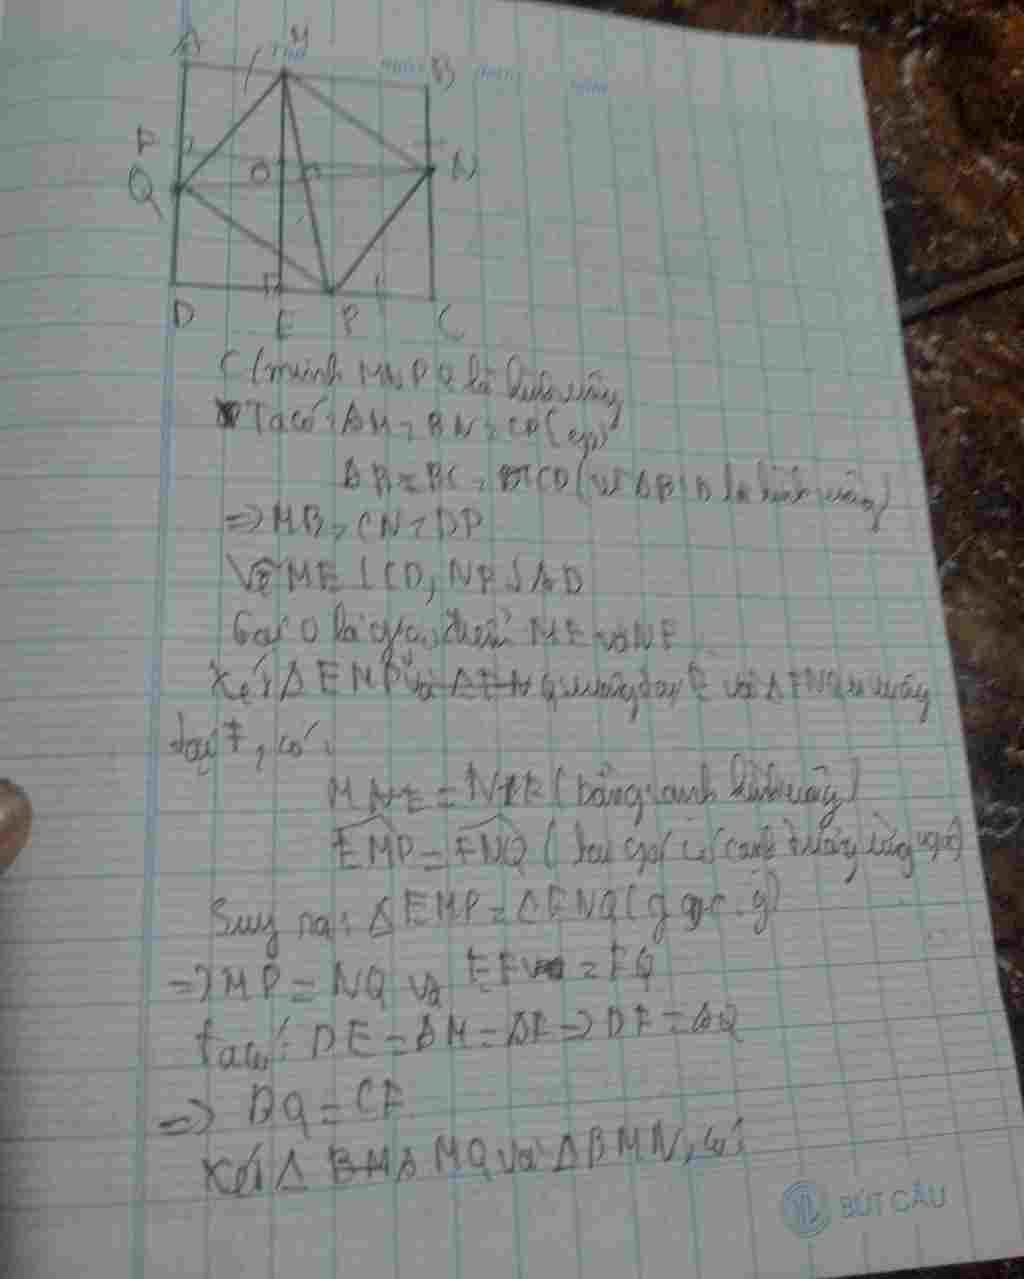 A M B
F
Q O N
D E P C
C/minh MNPQ là hình vuông
Ta có: AM = BN = CP (gt)
AB = BC = CD (vì ABCD là hình vuông)
=> MB = CN = DP
Vẽ ME ⊥ CD, NF ⊥ AD
Gọi O là giao điểm ME và NF
Xét Δ EMP vuông tại E và Δ FNQ vuông
tại F, có:
= (bằng cạnh hình vuông)
EMP = FNQ (hai góc có cạnh tương ứng vuông góc)
Suy ra: Δ EMP = Δ FNQ (g.c.g)
=> MP = NQ và = FQ
Ta có: DE = AM = AF => DP = AQ
=> DQ = CP
Xét Δ AMQ và Δ BMN, có:
BÚT CÂU